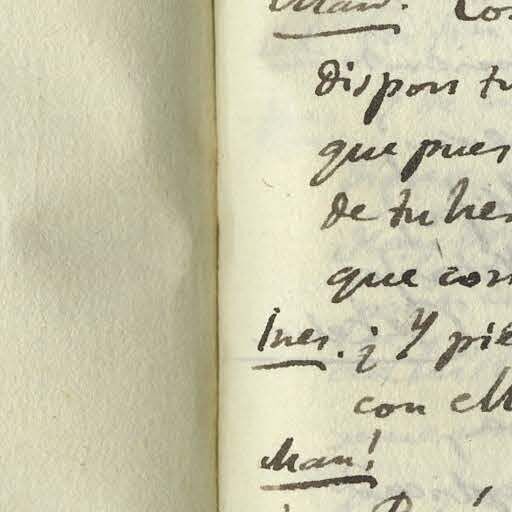 Man. Co
dispon tu
que pues
de tu he
que con
Ines. ¿Y pie
con ell
Man!